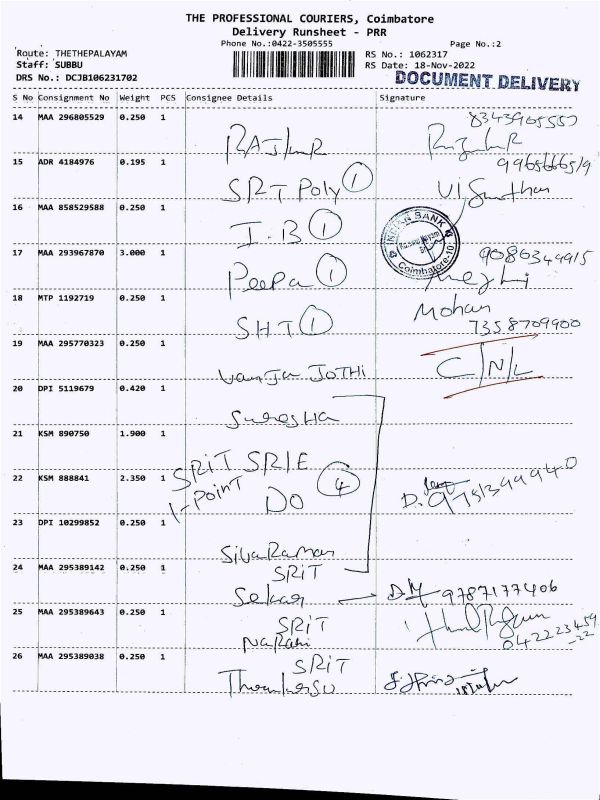 THE PROFESSIONAL COURIERS, Coimbatore
Delivery Runsheet - PRR
Phone No.:0422-3505555
Page No.:2
Route: THETHEPALAYAM
RS No.: 1062317
Staff: SUBBU
RS Date: 18-Nov-2022
DRS No.: DCJB106231702
DOCUMENT DELIVERY
S No Consignment No Weight PCS Consignee Details Signature
14 MAA 296805529 0.250 1
8343965550
RAJKUR
15 ADR 4184976 0.195 1
SRT Poly 1
16 MAA 858529588 0.250 1
I.B 1
INDIAN BANK
Coimbatore-10
17 MAA 293967870 3.000 1
9086344915
Peepa 1
18 MTP 1192719 0.250 1
Mohan
SHT 1
7358709900
19 MAA 295770323 0.250 1
Vanja JOTHI
C/N/L
20 DPI 5119679 0.420 1
21 KSM 890750 1.900 1
SRIT SRIE
22 KSM 888841 2.350 1
1-POINT
DO 4
9751399940
23 DPI 10299852 0.250 1
SivaRaman
24 MAA 295389142 0.250 1
SRIT
Sekar
D.M 9787177406
25 MAA 295389643 0.250 1
SRIT
26 MAA 295389038 0.250 1
SRIT